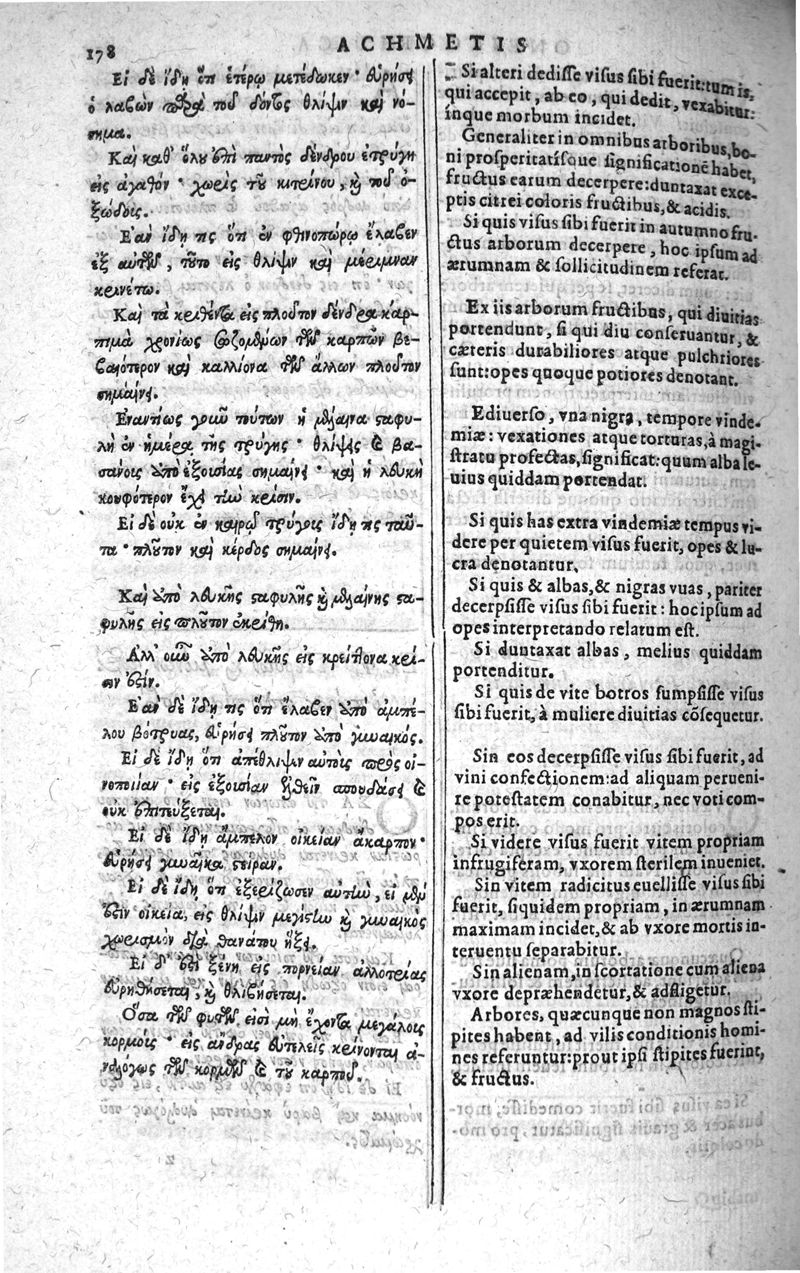 178
ACHMETIS
Εἰ δὲ ἴδῃ ὅτι ἑτέρῳ μετέδωκεν· εὑρήσει
ὁ λαβὼν παρὰ τοῦ δόντος θλίψιν καὶ νό-
σημα.
Καὶ καθ' ὅλου ἐπὶ παντὸς δένδρου ἐτρύγη
εἰς ἀγαθόν· χωρὶς τοῦ κιτρίνου, καὶ τοῦ ὀ-
ξώδους.
Ἐὰν ἴδῃ τις ὅτι ἐν φθινοπώρῳ ἔλαβεν
ἐξ αὐτῶν, τοῦτο εἰς θλίψιν καὶ μέριμναν
κρινέτω.
Καὶ τὰ κριθέντα εἰς πλοῦτον δένδρα κάρ-
πιμα χρονίως σωζομένων τῶν καρπῶν βε-
βαιότερον καὶ καλλίονα τῶν ἄλλων πλοῦτον
σημαίνει.
Ἐναντίως γοῦν τούτων ἡ μέλαινα σταφυ-
λὴ ἐν ἡμέρᾳ τῆς τρύγης· θλίψεις καὶ βα-
σάνοις ἀπὸ ἐξουσίας σημαίνει· καὶ ἡ λευκὴ
κουφότερον ἔχει τὴν κρίσιν.
Εἰ δὲ οὐκ ἐν καιρῷ τρύγης ἴδῃ τις ταῦ-
τα· πλοῦτον καὶ κέρδος σημαίνει.
Καὶ ἀπὸ λευκῆς σταφυλῆς καὶ μελαίνης στα-
φυλῆς εἰς πλοῦτον ἐκρίθη.
Ἀλλ' οὖν ἀπὸ λευκῆς εἰς κρείττονα κρί-
σιν ἐστίν.
Ἐὰν δὲ ἴδῃ τις ὅτι ἔλαβεν ἀπὸ ἀμπέ-
λου βότρυας, εὑρήσει πλοῦτον ἀπὸ γυναικός.
Εἰ δὲ ἴδῃ ὅτι ἀπέθλιψεν αὐτοὺς πρὸς οἰ-
νοποιίαν· εἰς ἐξουσίαν ἐλθεῖν σπουδάσει καὶ
οὐκ ἐπιτεύξεται.
Εἰ δὲ ἴδῃ ἄμπελον οἰκείαν ἄκαρπον·
εὑρήσει γυναῖκα στεῖραν.
Εἰ δὲ ἴδῃ ὅτι ἐξερίζωσεν αὐτὴν, εἰ μέν
ἐστιν οἰκεία, εἰς θλίψιν μεγίστην καὶ γυναικὸς
χωρισμὸν διὰ θανάτου ἥξει.
Εἰ δ' ἐστὶ ξένη εἰς πορνείαν ἀλλοτρίας
εὑρηθήσεται, καὶ θλιβήσεται.
Ὅσα τῶν φυτῶν εἰσὶ μὴ ἔχοντα μεγάλους
κορμούς· εἰς ἄνδρας εὐτελεῖς κρίνονται ἀ-
ναλόγως τῶν κορμῶν καὶ τοῦ καρποῦ.
Si alteri dedisse visus sibi fuerit: tum is,
qui accepit, ab eo, qui dedit, vexabitur:
inque morbum incidet.
Generaliter in omnibus arboribus, bo-
ni prosperitatisque significationē habet,
fructus earum decerpere: duntaxat exce-
ptis citrei coloris fructibus, & acidis.
Si quis visus sibi fuerit in autumno fru-
ctus arborum decerpere, hoc ipsum ad
ærumnam & sollicitudinem referat.
Ex iis arborum fructibus, qui diuitias
portendunt, si qui diu conseruantur, &
cæteris durabiliores atque pulchriores
sunt: opes quoque potiores denotant.
Ediuerso, vna nigra, tempore vinde-
miæ: vexationes atque torturas, à magi-
stratu profectas, significat: quum alba le-
uius quiddam portendat.
Si quis has extra vindemiæ tempus vi-
dere per quietem visus fuerit, opes & lu-
cra denotantur.
Si quis & albas, & nigras vuas, pariter
decerpsisse visus sibi fuerit: hoc ipsum ad
opes interpretando relatum est.
Si duntaxat albas, melius quiddam
portenditur.
Si quis de vite botros sumpsisse visus
sibi fuerit, à muliere diuitias cōsequetur.
Sin eos decerpsisse visus sibi fuerit, ad
vini confectionem: ad aliquam perueni-
re potestatem conabitur, nec voti com-
pos erit.
Si videre visus fuerit vitem propriam
infrugiferam, vxorem sterilem inueniet.
Sin vitem radicitus euellisse visus sibi
fuerit, siquidem propriam, in ærumnam
maximam incidet, & ab vxore mortis in-
teruentu separabitur.
Sin alienam, in scortatione cum aliena
vxore depræhendetur, & adfligetur.
Arbores, quæcunque non magnos sti-
pites habent, ad vilis conditionis homi-
nes referuntur: prout ipsi stipites fuerint,
& fructus.